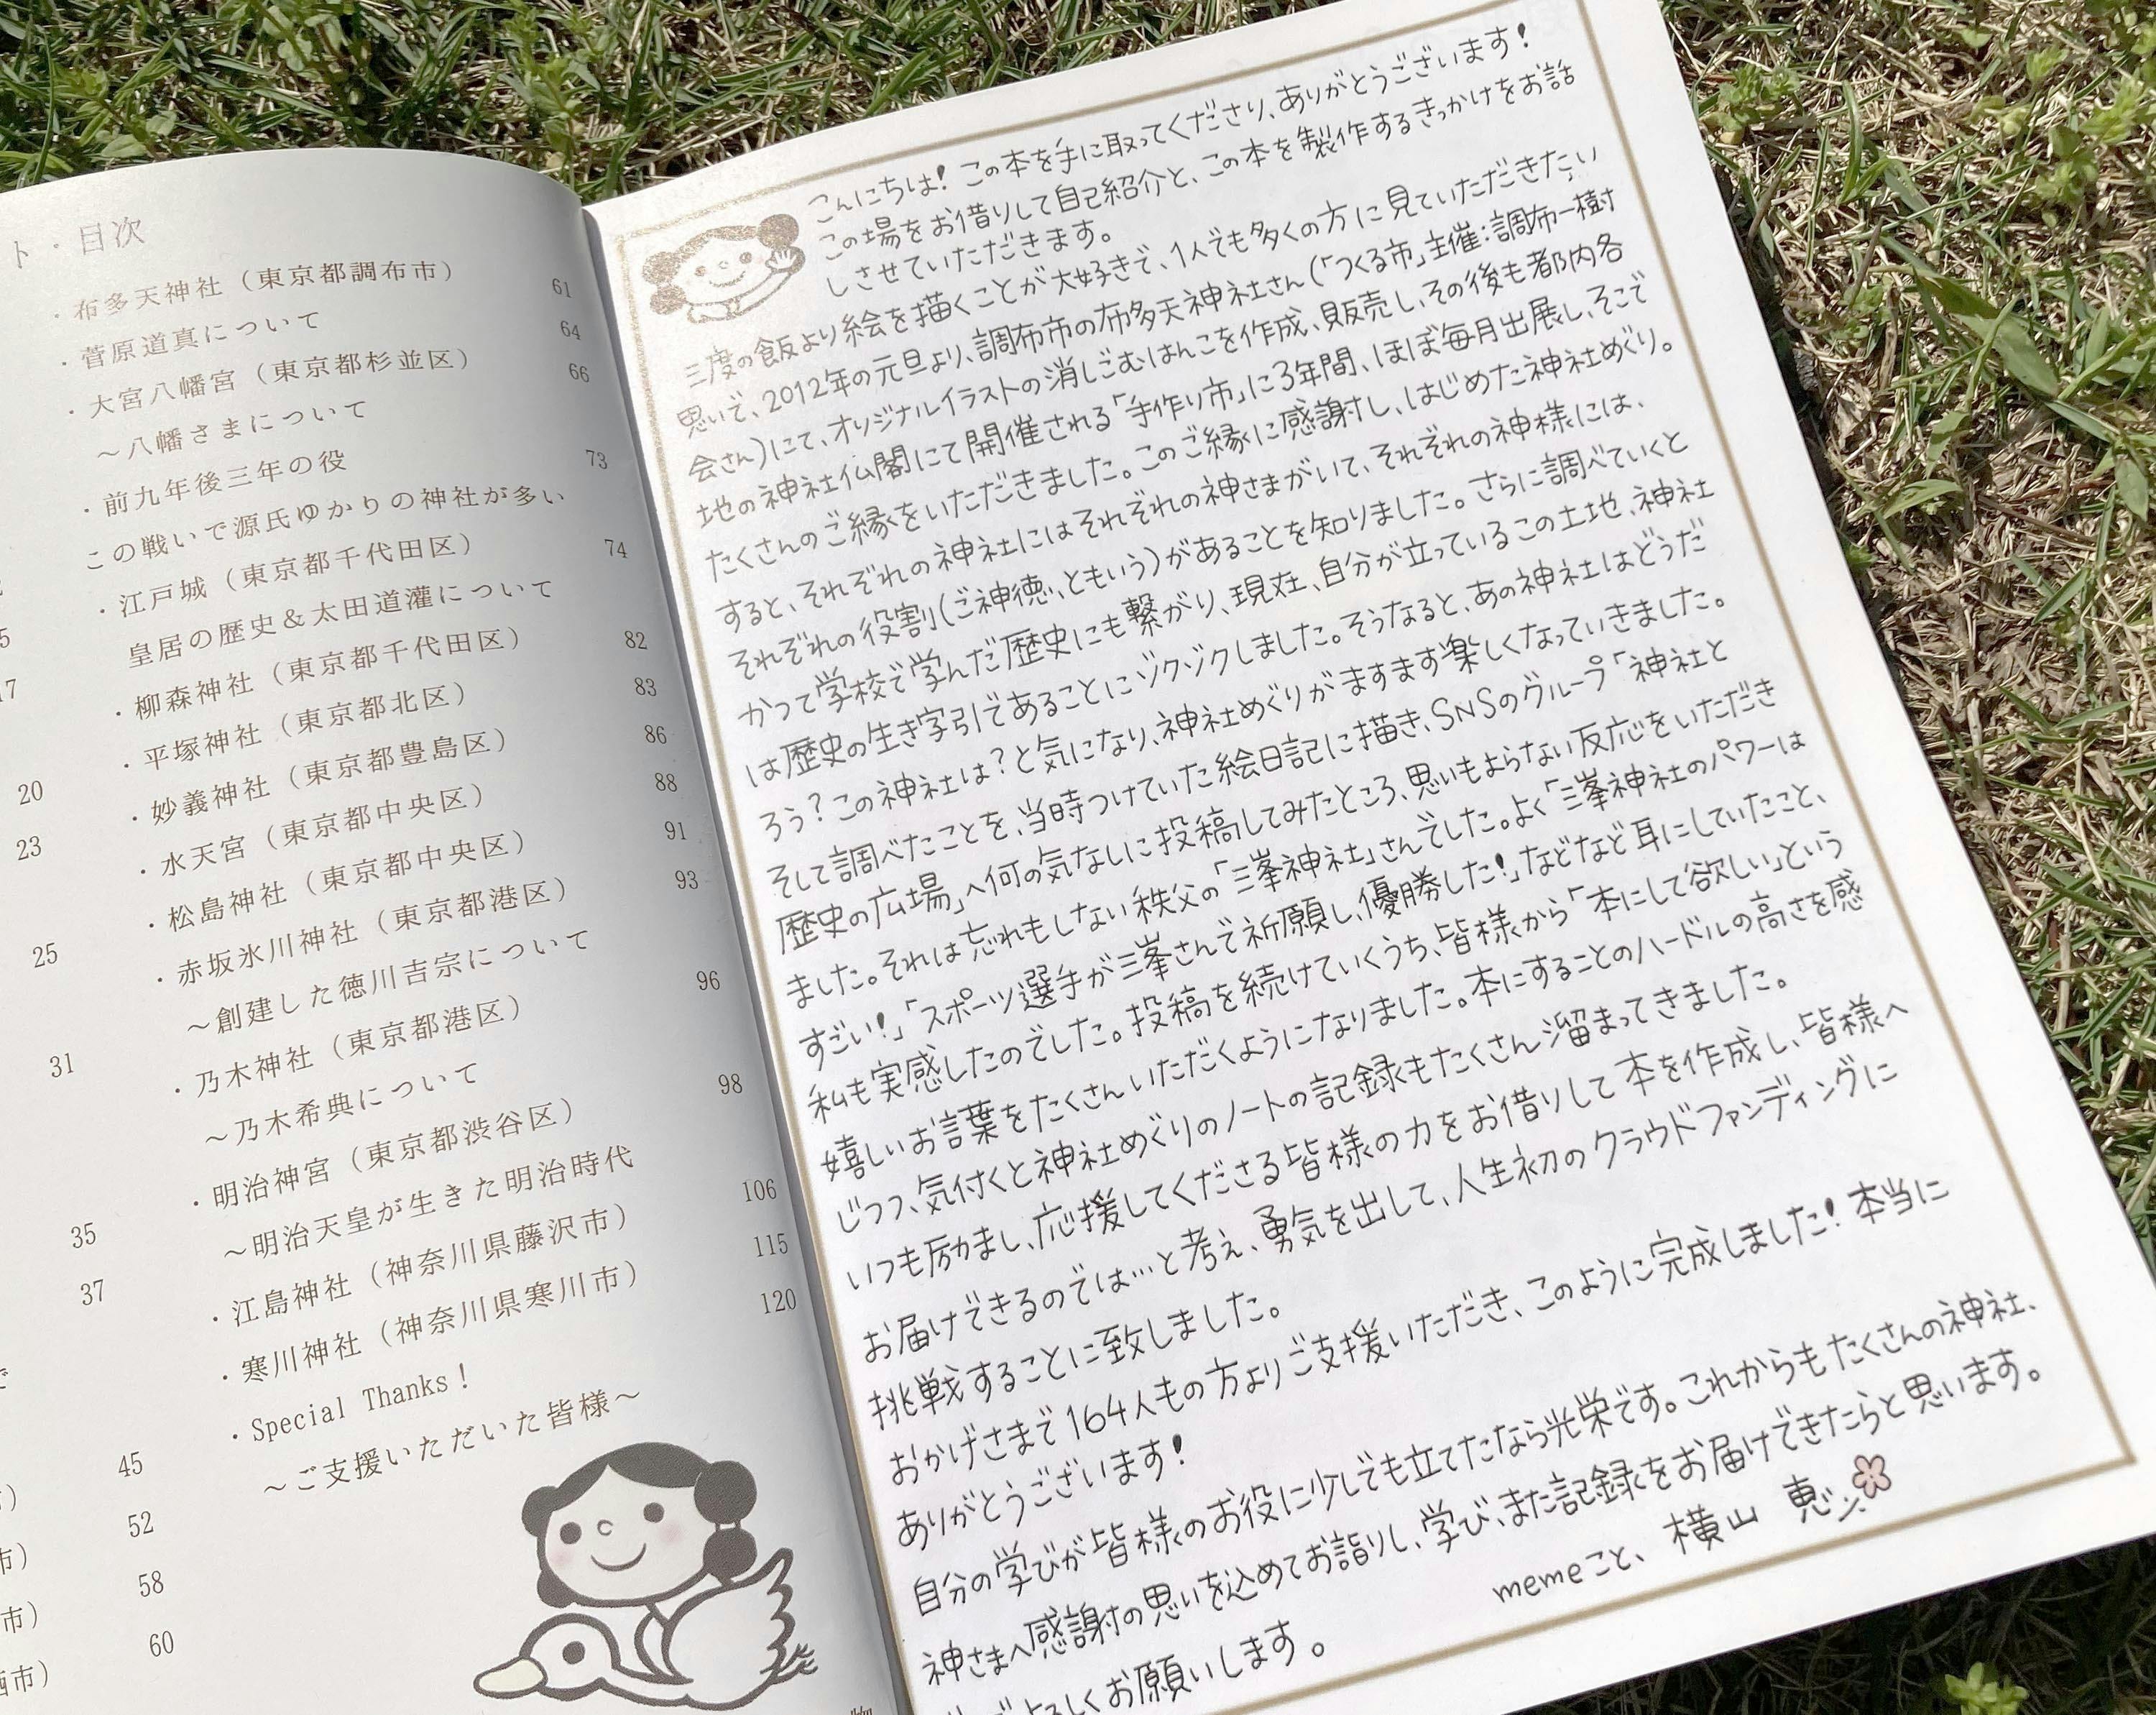 ト・目次
・布多天神社（東京都調布市） 61
・菅原道真について 64
・大宮八幡宮（東京都杉並区） 66
～八幡さまについて
・前九年後三年の役 73
この戦いで源氏ゆかりの神社が多い
・江戸城（東京都千代田区） 74
皇居の歴史＆太田道灌について
・柳森神社（東京都千代田区） 82
・平塚神社（東京都北区） 83
・妙義神社（東京都豊島区） 86
・水天宮（東京都中央区） 88
・松島神社（東京都中央区） 91
・赤坂氷川神社（東京都港区） 93
～創建した徳川吉宗について
・乃木神社（東京都港区） 96
～乃木希典について
・明治神宮（東京都渋谷区） 98
～明治天皇が生きた明治時代
・江島神社（神奈川県藤沢市） 106
・寒川神社（神奈川県寒川市） 115
・Special Thanks！ 120
～ご支援いただいた皆様～
20
23
25
31
35
37
45
52
58
市）
60
こんにちは！この本を手に取ってくださり、ありがとうございます！
この場をお借りして自己紹介と、この本を製作するきっかけをお話
しさせていただきます。
三度の飯より絵を描くことが大好きで、1人でも多くの方に見ていただきたい
思いで、2012年の元旦より、調布市の布多天神社さん（「つくる市」主催：調布一樹
会さん）にて、オリジナルイラストの消しごむはんこを作成、販売し、その後も都内各
地の神社仏閣にて開催される「手作り市」に3年間、ほぼ毎月出展し、そこで
たくさんのご縁をいただきました。このご縁に感謝し、はじめた神社めぐり。
すると、それぞれの神社にはそれぞれの神さまがいて、それぞれの神様には、
それぞれの役割（ご神徳、ともいう）があることを知りました。さらに調べていくと
かつて学校で学んだ歴史にも繋がり、現在、自分が立っているこの土地、神社
は歴史の生き字引であることにゾクゾクしました。そうなると、あの神社はどうだ
ろう？この神社は？と気になり、神社めぐりがますます楽しくなっていきました。
そして調べたことを、当時つけていた絵日記に描き、SNSのグループ「神社と
歴史の広場」へ何の気なしに投稿してみたところ、思いもよらない反応をいただき
ました。それは忘れもしない秩父の「三峯神社」さんでした。よく「三峯神社のパワーは
すごい！」「スポーツ選手が三峯さんで祈願し、優勝した！」などなど耳にしていたこと、
私も実感したのでした。投稿を続けていくうち、皆様から「本にして欲しい」という
嬉しいお言葉をたくさんいただくようになりました。本にすることのハードルの高さを感
じつつ、気付くと神社めぐりのノートの記録もたくさん溜まってきました。
いつも励まし、応援してくださる皆様の力をお借りして本を作成し、皆様へ
お届けできるのでは…と考え、勇気を出して、人生初のクラウドファンディングに
挑戦することに致しました。
おかげさまで164人もの方よりご支援いただき、このように完成しました！本当に
ありがとうございます！
自分の学びが皆様のお役に少しでも立てたなら光栄です。これからもたくさんの神社、
神さまへ感謝の思いを込めてお詣りし、学び、また記録をお届けできたらと思います。
よろしくお願いします。
memeこと、横山 恵